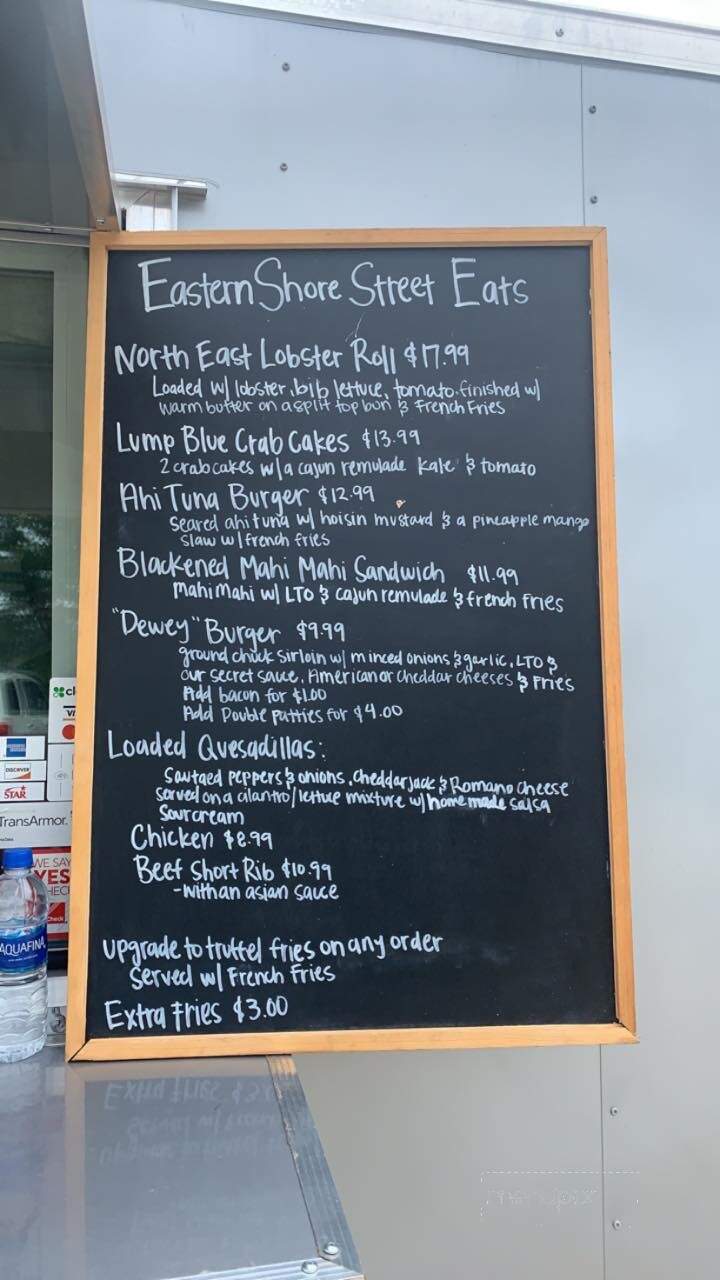 Eastern Shore Street Eats
North East Lobster Roll $17.99
Loaded w/ lobster, bib lettuce, tomato. finished w/
warm butter on a split top bun & French Fries
Lump Blue Crab Cakes $13.99
2 crab cakes w/ a cajun remulade kale & tomato
Ahi Tuna Burger $12.99
seared ahi tuna w/ hoisin mustard & a pineapple mango
slaw w/ french fries
Blackened Mahi Mahi Sandwich $11.99
mahi mahi w/ LTO & cajun remulade & french fries
"Dewey" Burger $9.99
ground chuck sirloin w/ minced onions & garlic, LTO &
our secret sauce, American or cheddar cheeses & Fries
Add bacon for $1.00
Add Double patties for $4.00
Loaded Quesadillas:
Sautaed peppers & onions, cheddar jack & Romano cheese
served on a cilantro/lettuce mixture w/ home made salsa
Sour cream
Chicken $8.99
Beef Short Rib $10.99
-with an asian sauce
upgrade to truffel fries on any order
served w/ French Fries
Extra Fries $3.00
DISCOVER
STAR
TransArmor.
WE SAY
YES
Check
AQUAFINA
menupix